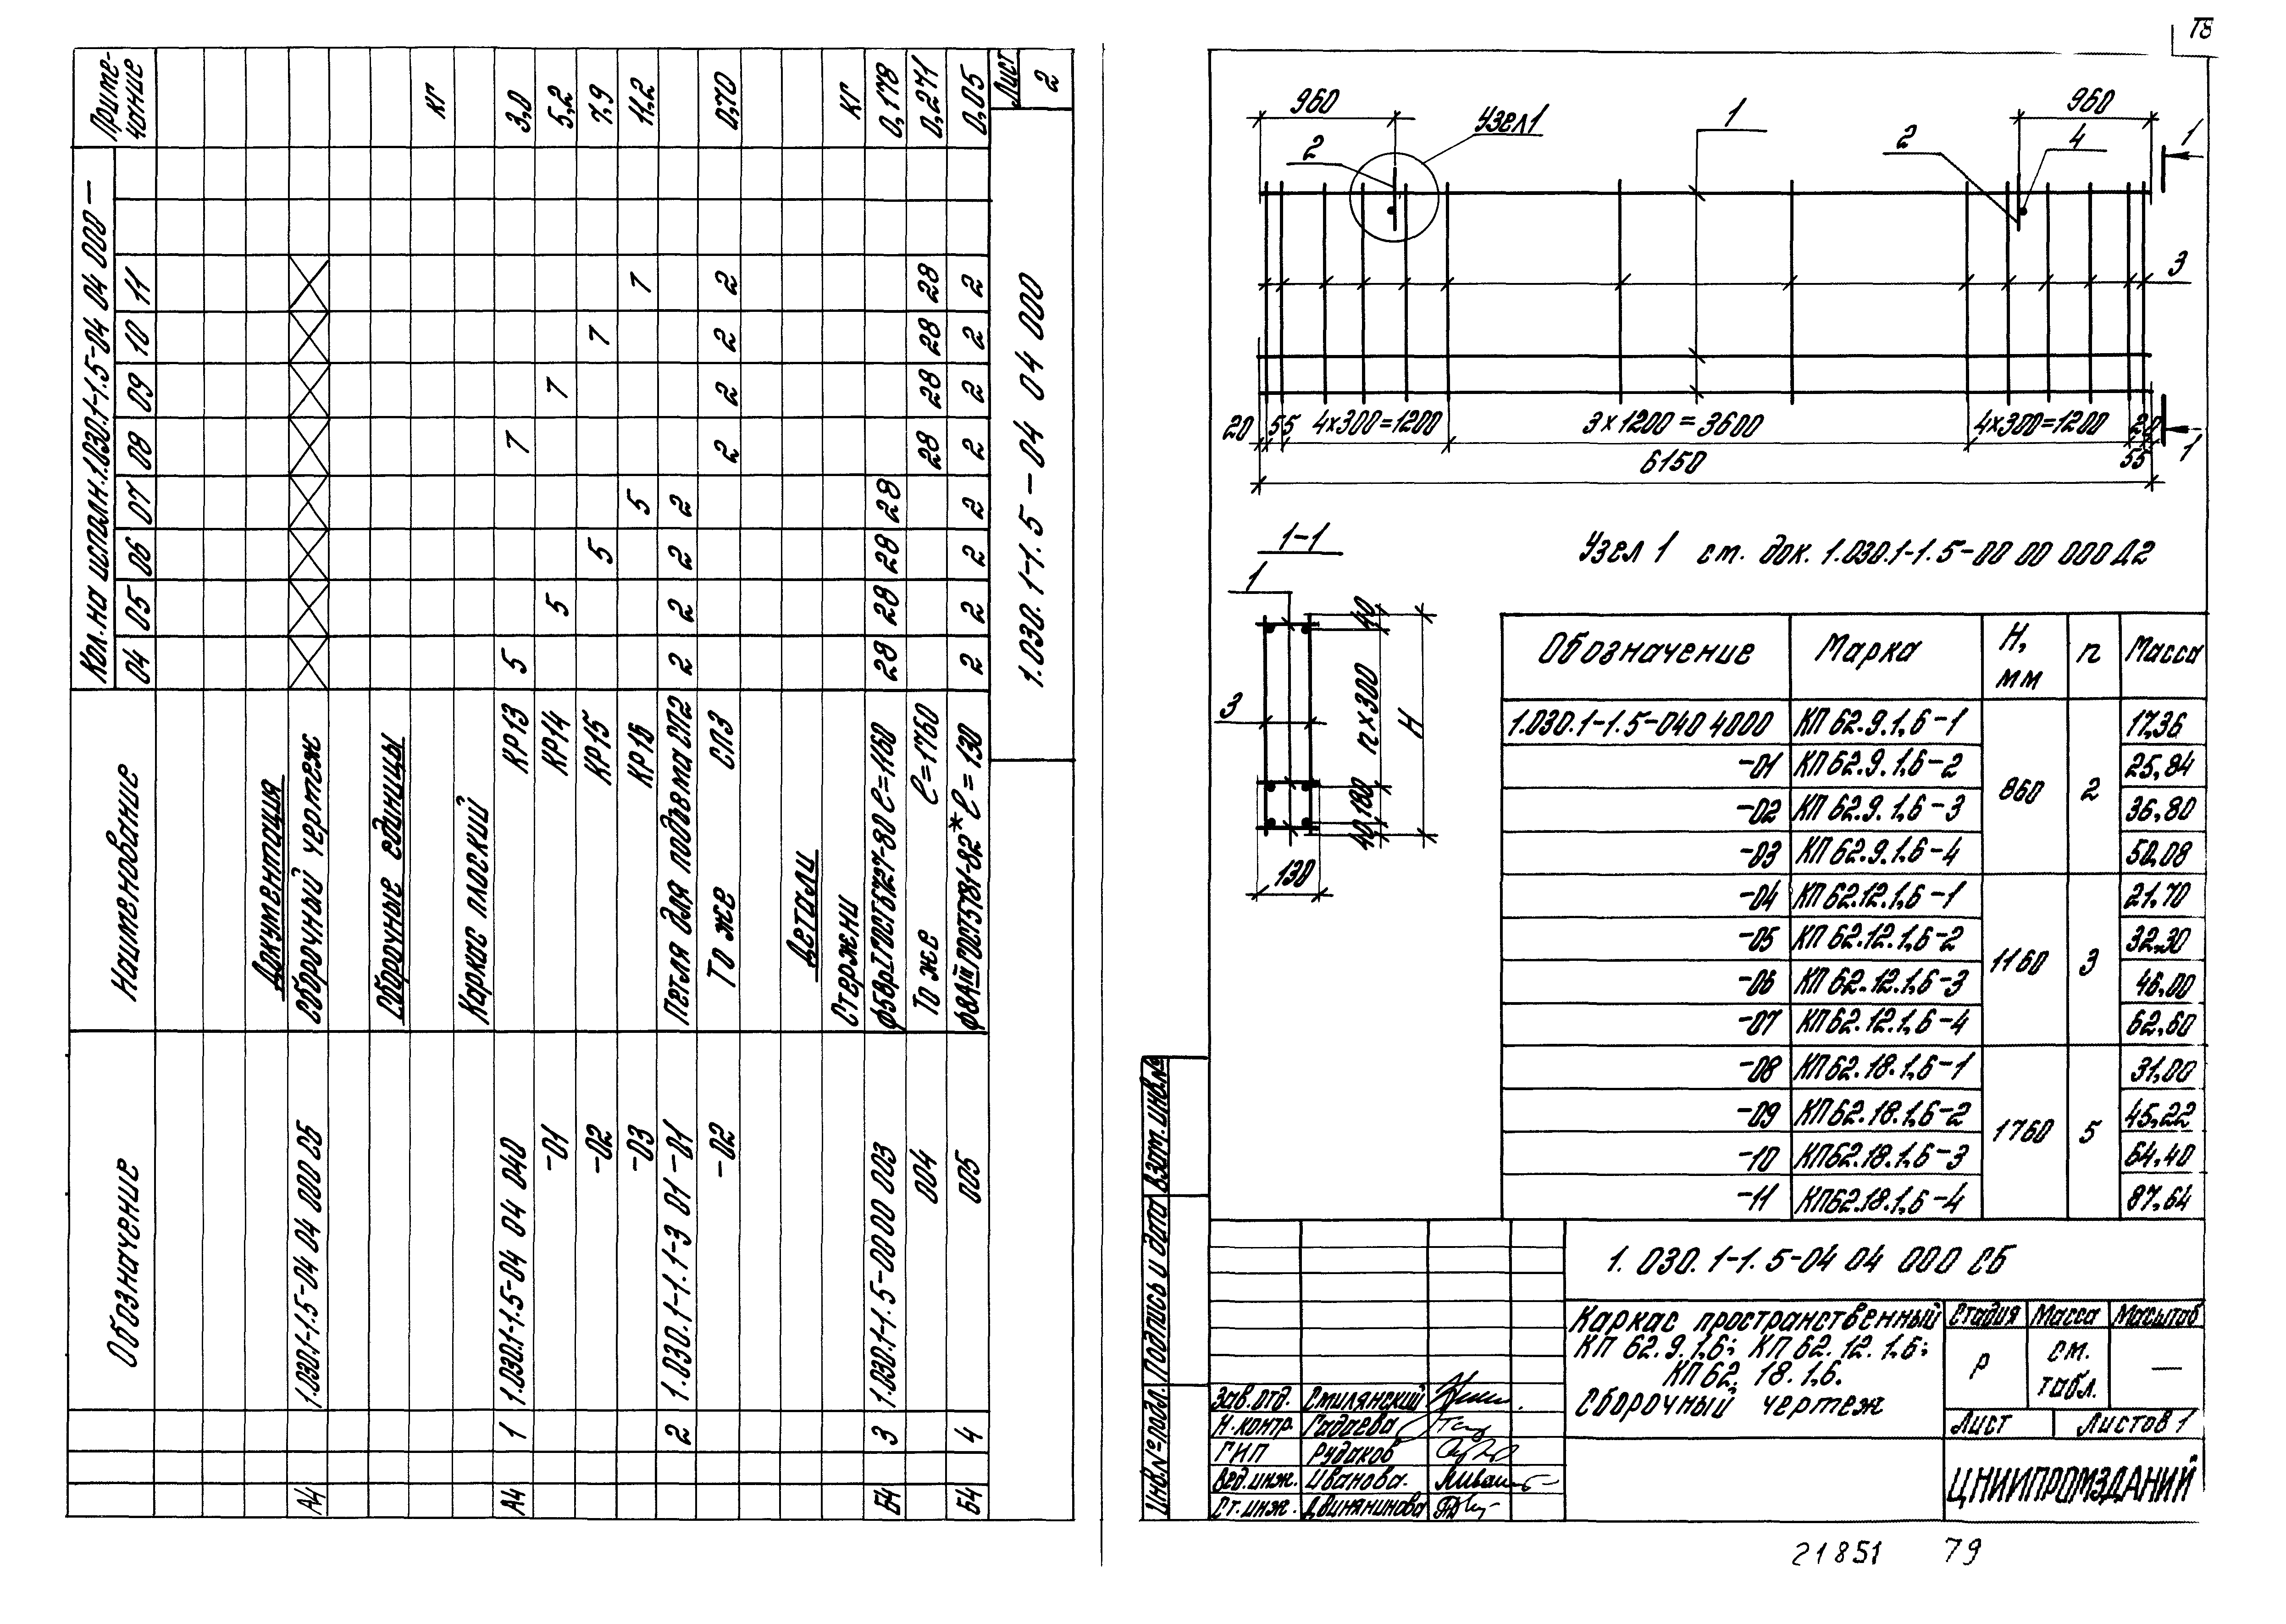 Обозначение Наименование Кол. на исполн. 1.030.1-1.5-04 04 000 — Приме-чание
04 05 06 07 08 09 10 11
Документация
А4 1.030.1-1.5-04 04 000 СБ Сборочный чертеж
Сборочные единицы кг
Каркас плоский
А4 1 1.030.1-1.5-04 04 040 КР13 5 7 3,0
-01 КР14 5 7 5,2
-02 КР15 5 7 7,9
-03 КР16 5 7 11,2
2 1.030.1-1.1-3 01-01 Петля для подъема СП2 2 2 2 2
-02 То же СП3 2 2 2 2 0,70
Детали
Стержни кг
Б4 3 1.030.1-1.5-00 00 003 ф5ВрI ГОСТ 6727-80 ℓ=1160 28 28 28 28 0,178
004 То же ℓ=1760 28 28 28 28 0,271
Б4 4 005 ф8АIII ГОСТ 5781-82* ℓ=130 2 2 2 2 2 2 2 2 0,05
1.030.1-1.5-04 04 000
Лист
2
78
960 Узел 1 1 960
2 2 4 1
3
20 55 4х300=1200 3х1200=3600 4х300=1200 20
6150 55 1
1-1
Узел 1 см. док. 1.030.1-1.5-00 00 000 Д2
1
3
40
n×300
H
180
40
130
Обозначение Марка H, мм n Масса
1.030.1-1.5-040 4000 КП 62.9.1,6-1 860 2 17,36
-01 КП 62.9.1,6-2 25,84
-02 КП 62.9.1,6-3 36,80
-03 КП 62.9.1,6-4 50,08
-04 КП 62.12.1,6-1 1160 3 21,70
-05 КП 62.12.1,6-2 32,30
-06 КП 62.12.1,6-3 46,00
-07 КП 62.12.1,6-4 62,60
-08 КП 62.18.1,6-1 1760 5 31,00
-09 КП 62.18.1,6-2 45,22
-10 КП 62.18.1,6-3 64,40
-11 КП 62.18.1,6-4 87,64
1.030.1-1.5-04 04 000 СБ
Каркас пространственный
КП 62.9.1,6; КП 62.12.1,6;
КП 62.18.1,6.
Сборочный чертеж
Стадия Масса Масштаб
Р см. табл. —
Лист Листов 1
ЦНИИПРОМЗДАНИЙ
Зав.отд. Смилянский
Н.контр. Гадаева
ГИП Рудаков
Вед.инж. Иванова.
Ст.инж. Двинянинова
Инв.№подл. Подпись и дата Взам.инв.№
21851 79